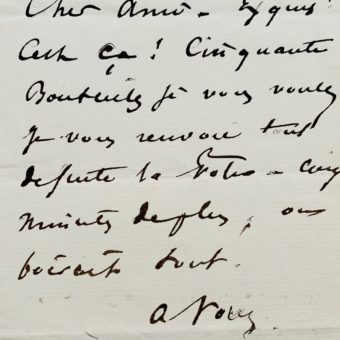 Cher Ami - Exquis!
C'est ça! Cinquante
Bouteilles si vous voulez
Je vous renvoie tout
de suite la Votre - cinq
minutes de plus, on
boirait tout.
a Vous